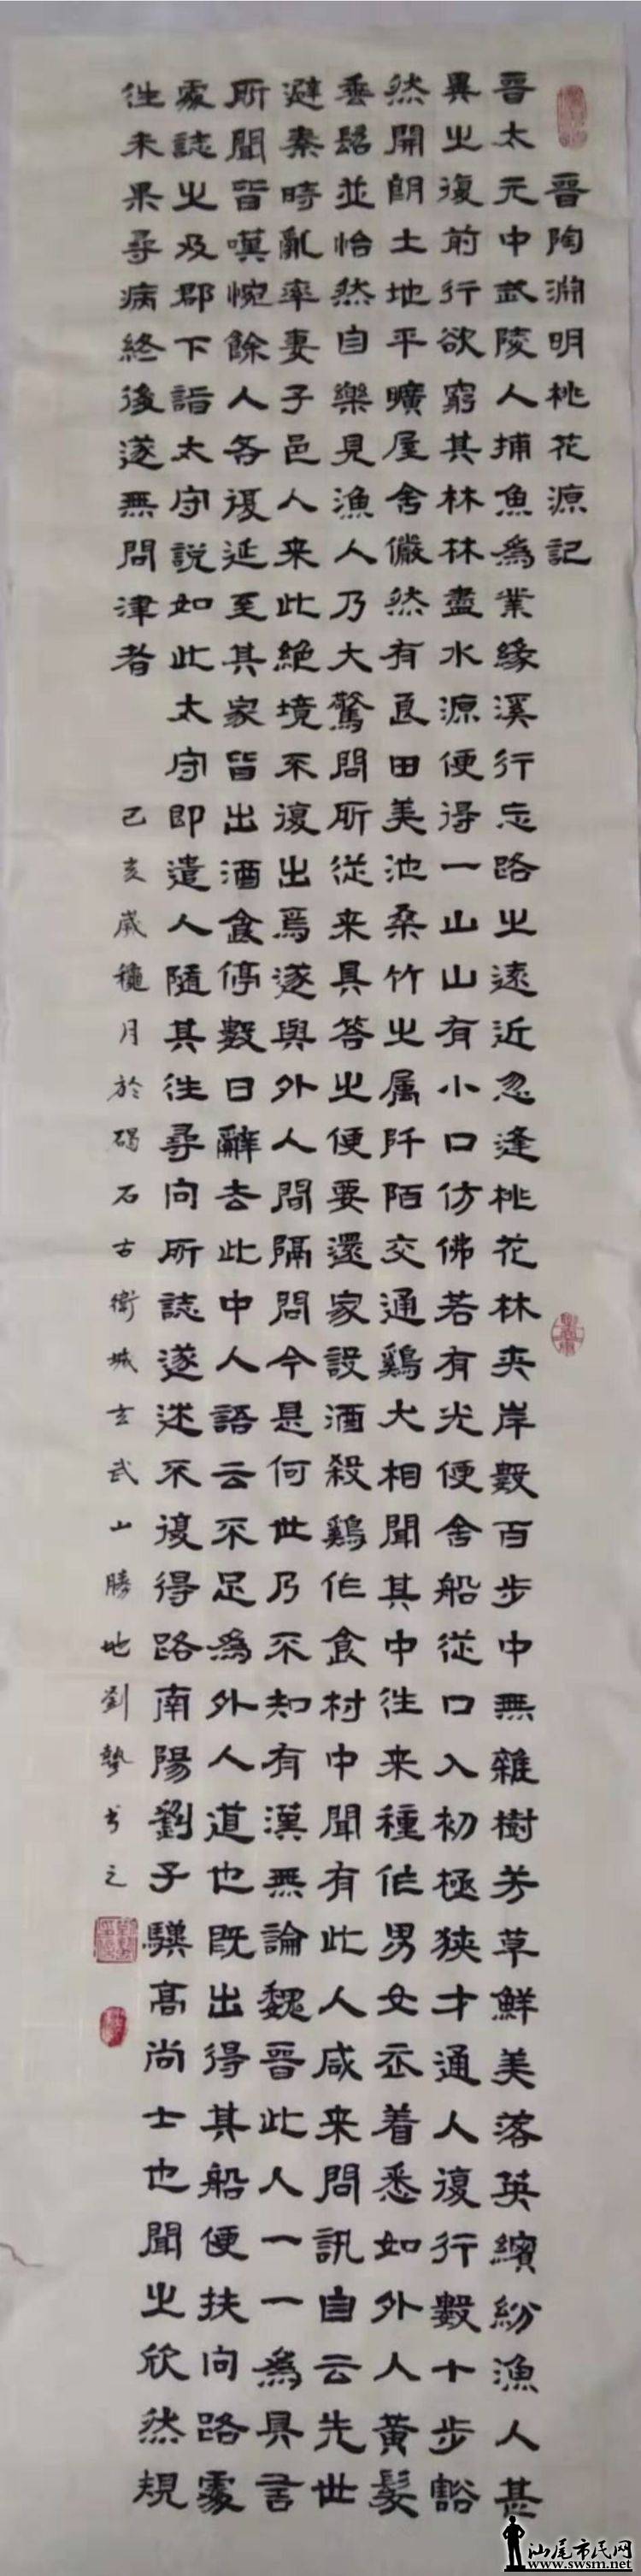 晉陶渊明桃花源記
晉太元中武陵人捕魚為業緣溪行忘路之遠近忽逢桃花林夾岸數百步中無雜樹芳草鮮美落英繽紛漁人甚
異之復前行欲窮其林林盡水源便得一山山有小口仿佛若有光便舍船從口入初極狹才通人復行數十步豁
然開朗土地平曠屋舍儼然有良田美池桑竹之属阡陌交通鷄犬相聞其中往来種作男女衣着悉如外人黃髮
垂髫並怡然自樂見漁人乃大驚問所從来具答之便要還家設酒殺鷄作食村中聞有此人咸来問訊自云先世
避秦時亂率妻子邑人来此絕境不復出焉遂與外人間隔問今是何世乃不知有漢無論魏晉此人一一為具言
所聞皆嘆惋餘人各復延至其家皆出酒食停數日辭去此中人語云不足為外人道也既出得其船便扶向路處
處誌之及郡下詣太守說如此太守即遣人隨其往尋向所誌遂迷不復得路南陽劉子驥高尚士也聞之欣然規
往未果尋病終後遂無問津者
己亥歲穐月於碣石古衛城玄武山勝地劉书之
汕尾市民网
www.swsm.net